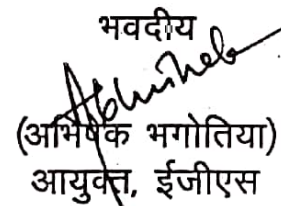 भवदीय
Abhishek
(अभिषेक भगोतिया)
आयुक्त, ईजीएस